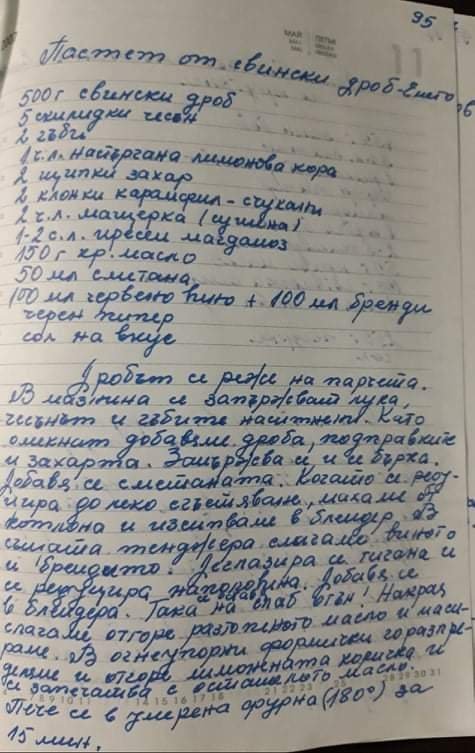 95
МАЙ
ПЕТЪК
11
Пастет от свински дроб-Емето
500 г свински дроб
5 скилидки чесън
2 гъби
1 ч.л. настъргана лимонова кора
2 щипки захар
2 клонки карамфил - счукани
2 ч.л. мащерка (сушена)
1-2 с.л. пресен магданоз
150 г кр. масло
50 мл сметана
100 мл червено вино + 100 мл бренди
черен пипер
сол на вкус
Дробът се реже на парчета.
В мазнина се запържват лука,
чесънът и гъбите наситнени. Като
омекнат добавяме дроба, подправките
и захарта. Запържва се и се бърка.
Добавя се сметаната. Когато се реду-
цира до леко сгъстяване, махаме от
котлона и изсипваме в блендер. В
същата тенджера слагаме виното
и брендито. Деглазира се тигана и
се редуцира наполовина. Добавя се
в блендера. Така на слаб огън! Накрая
слагаме отгоре разтопеното масло и паси-
раме. В огнеупорни формички го разпре-
деляме и отгоре лимонната коричка и
се запечатва с останалото масло.
Пече се в умерена фурна (180°) за
15 мин.